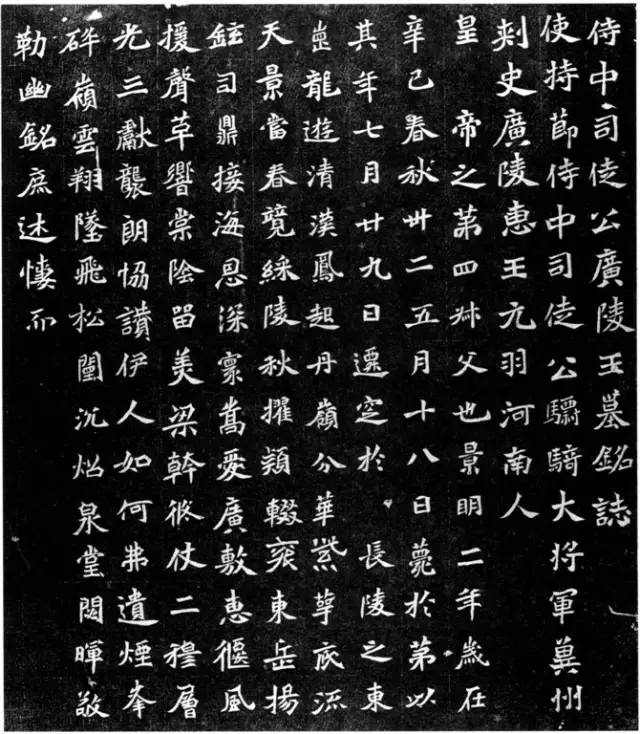 侍中司徒公廣陵王墓銘誌
使持節侍中司徒公驃騎大將軍冀州
刺史廣陵惠王元羽河南人
皇帝之第四叔父也景明二年歲在
辛巳春秋卅二五月十八日薨於第以
其年七月廿九日遷窆於長陵之東
崗龍遊清漢鳳起丹嶺分華紫萼底流
天景當春競綵陵秋擢穎輟袞東岳揚
鉉司鼎接海恩深寰嵩愛廣敷惠偃風
援聲草響棠陰留美梁幹倏仗二穆層
光三獻襲朗協讚伊人如何弗遺煙峯
碎嶺雲翔墜飛松闈沉炤泉堂閟暉敬
勒幽銘庶述悽而